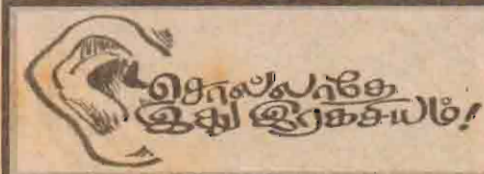 சொல்லாதே
இது இரகசியம்!